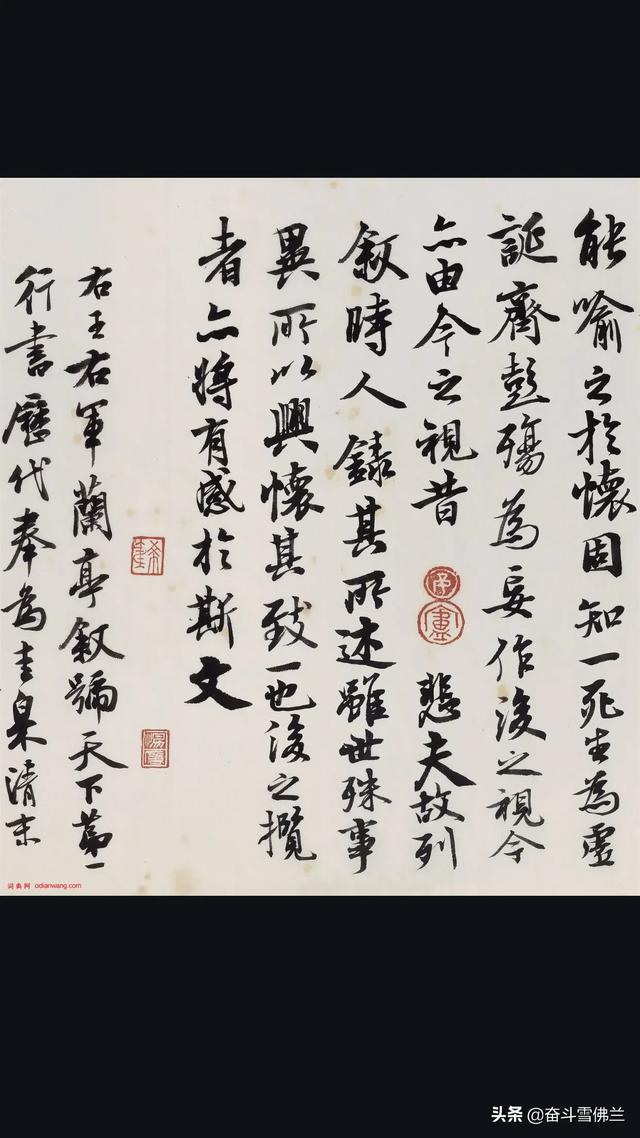 能喻之於懷固知一死生為虛
誕齊彭殤為妄作後之視今
亦由今之視昔 悲夫故列
敘時人錄其所述雖世殊事
異所以興懷其致一也後之攬
者亦將有感於斯文
右王右軍蘭亭敘號天下第一
行書歷代奉為圭臬清末
词典网 cidianwang.com
头条 @奋斗雪佛兰